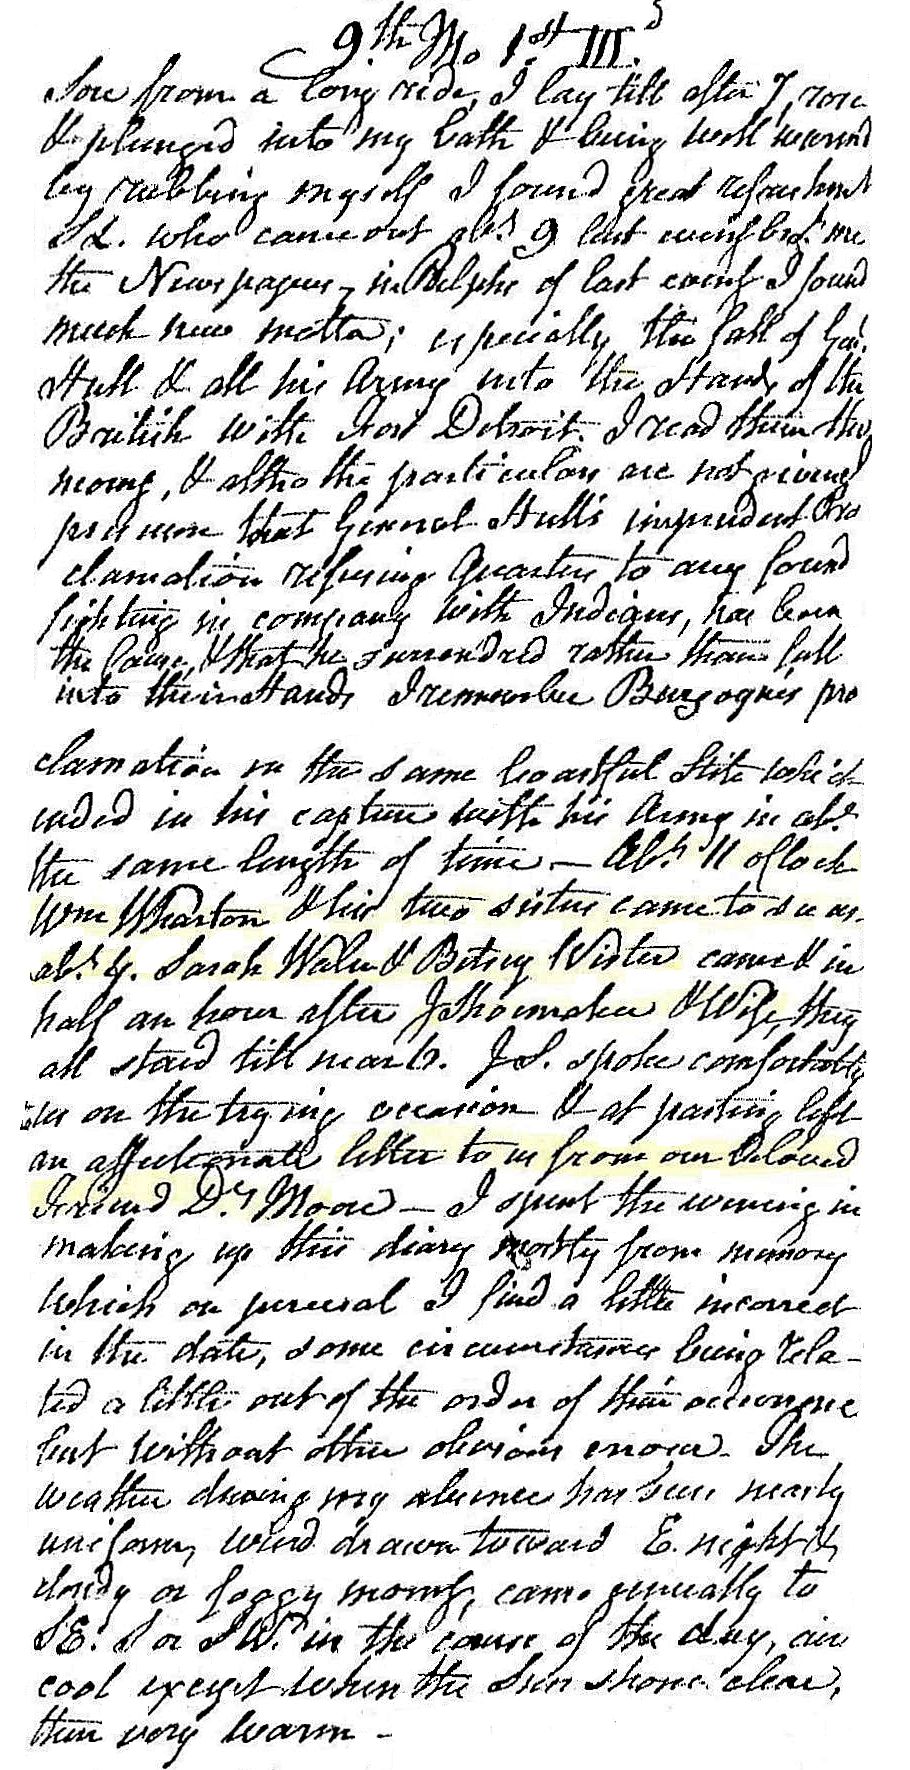 9th Mo 1st III.d
Sore from a long ride, I lay till after 7, rose
& plunged into my bath & being well warmd
by rubbing myself I found great refreshmt
SL. who came out abt. 9 last evng brot. me
the Newspapers, in Relphs of last eveng I found
much new matter; especially the fall of Genl.
Hull & all his Army into the Hands of the
British with Fort Detroit. I read them this
morng, & altho the particulars are not given I
presume that General Hull's imprudent Pro
clamation refusing Quarters to any found
fighting in company with Indians, has been
the Cause, & that he surrendred rather than fall
into their Hands I remember Burgoyne's pro
clamation in the same boastful Stile which
ended in his capture with his Army in abt.
the same length of time — Abt. 11 oClock
Wm Wharton & his two sisters came to see us.
abt. 4. Sarah Waln & Betsey Wister came & in
half an hour after J Shoemaker & Wife, they
all staid till near 6. J S. spoke comfortably
to us on the trying occasion & at parting left
an affectionate letter to us from our beloved
Friend Dr. Moore — I spent the evening in
making up this diary mostly from memory
which on perusal I find a little incorrect
in the date, some circumstances being rela-
ted a little out of the order of their occurrence
but without other obvious errors. The
weather during my absence has been nearly
uniform, wind drawn toward E. night &
cloudy or foggy morng, came generally to
SE. S or SW. in the course of the day, air
cool except when the Sun shone clear,
then very warm —